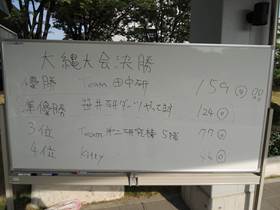 大縄大会決勝
優勝 Team 田中研 159回
準優勝 笹井研 124回
3位 Team 第二研究棟 5階 77回
4位 Kitty 回